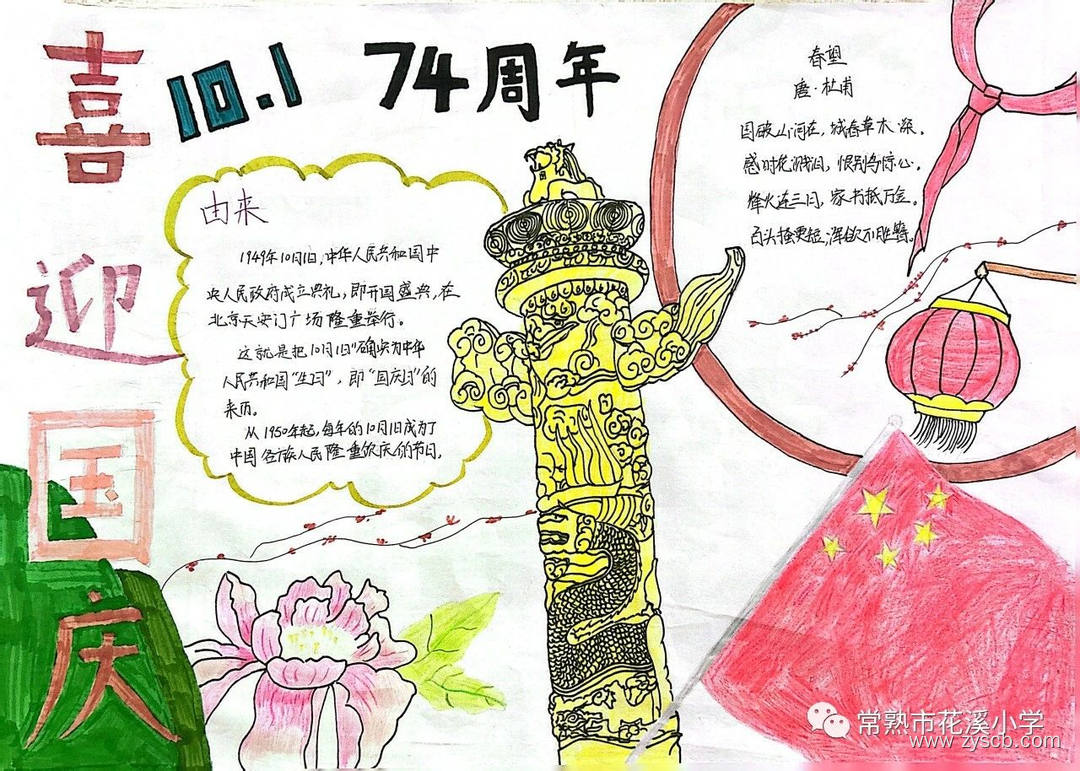 喜迎国庆
10.1 74周年
由来
1949年10月1日,中华人民共和国中
央人民政府成立典礼,即开国盛典,在
北京天安门广场隆重举行。
这就是把10月1日"确定为中华
人民共和国"生日",即"国庆日"的
来历。
从1950年起,每年的10月1日成为了
中国各族人民隆重欢庆的节日。
春望
唐·杜甫
国破山河在,城春草木深。
感时花溅泪,恨别鸟惊心。
烽火连三月,家书抵万金。
白头搔更短,浑欲不胜簪。
常熟市花溪小学
www.zyscb.com